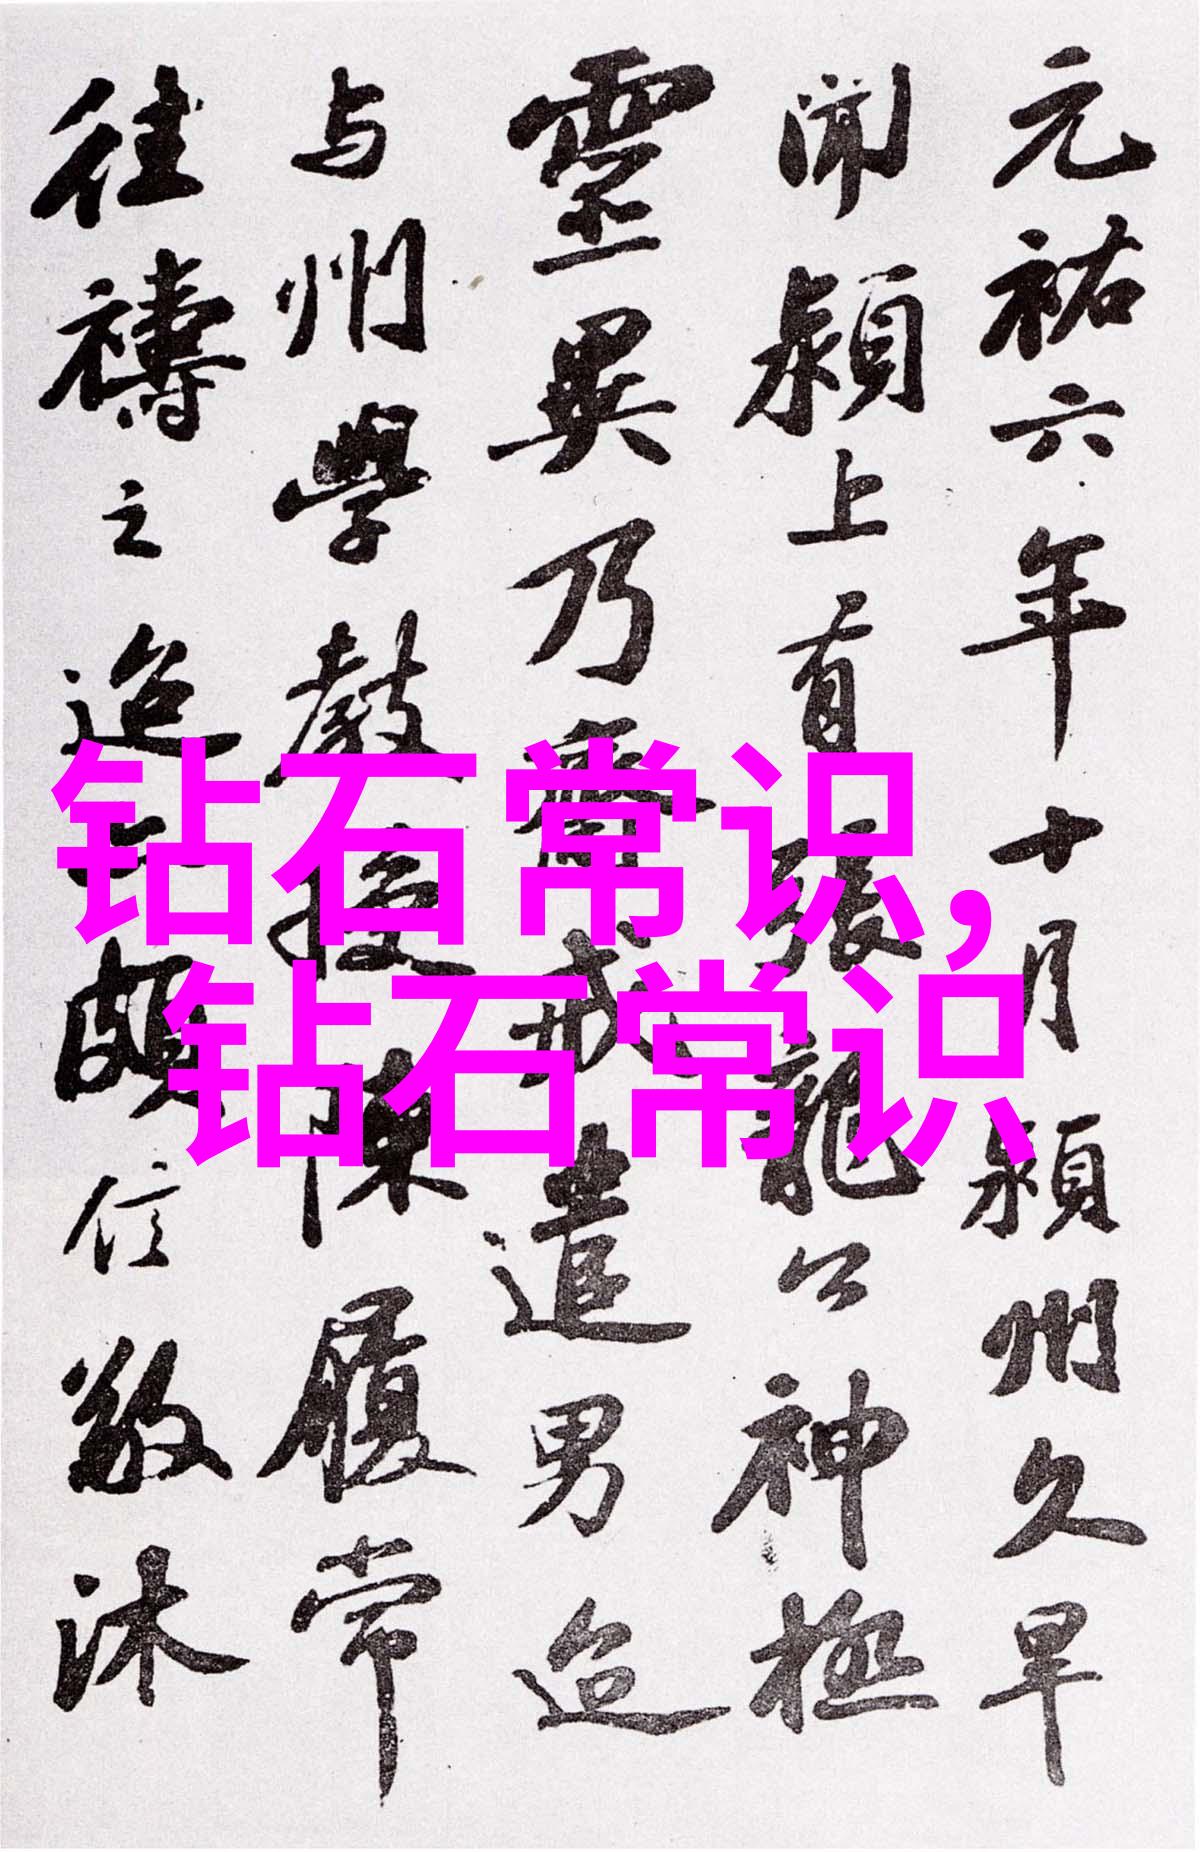 元祐六年十月潁州久旱
聞潁上有張龍公神極
靈異乃齋戒遣男迨
与州學教授陳履常
往禱之迨亦頗信敬沐
钻石常识,
钻石常识